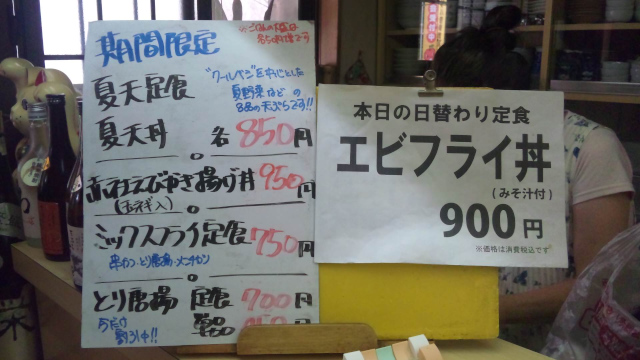 期間限定
※ごはんの大盛は
各50円増です
夏天定食
"クールベジ"を中心とした
夏野菜などの
8品の天ぷらです!!
夏天丼 各850円
赤エビえびやき揚げ丼 950円
(玉ネギ入)
ミックスフライ定食 750円
串カツ・とり唐揚・メンチカツ
とり唐揚 定食 700円
今だけ
割引中!!
本日の日替わり定食
エビフライ丼
(みそ汁付)
900円
※価格は消費税込です